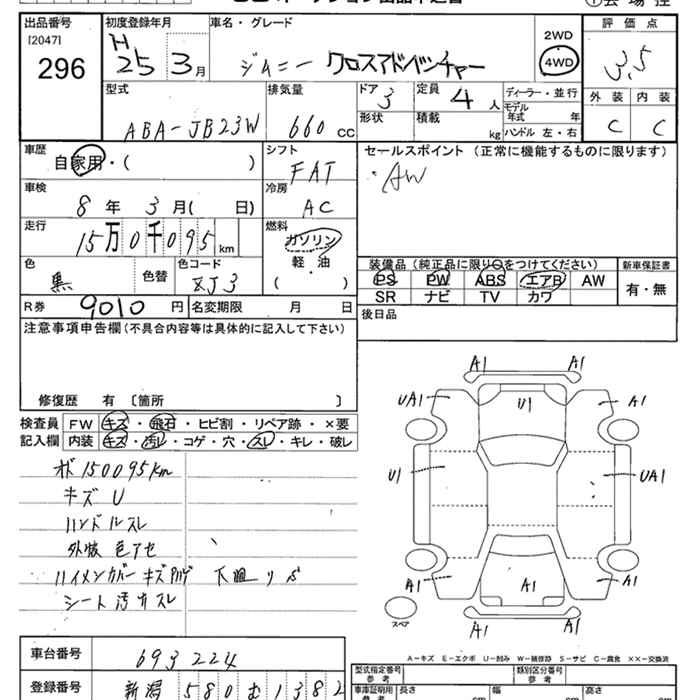 出品番号 初度登録年月 車名・グレード 評価点
[2047]
296
H
25 3月 ジムニー クロスアドベンチャー 2WD 4WD 3.5
型式 排気量 ドア 3 定員 4人 ディーラー・並行 外装 内装
ABA-JB23W 660 CC 形状 積載 kg モデル年式 年 C C
ハンドル 左・右
車歴 シフト セールスポイント (正常に機能するものに限ります)
自家用・( ) FAT ・AW
車検 冷房
8年 3月( 日) AC
走行 燃料
15万0千095km ガソリン
軽・油
( )
色 色替 色コード 装備品(純正品に限り○をつけてください) 新車保証書
黒 ZJ3 PS PW ABS エアB AW 有・無
SR ナビ TV カワ
R券 9010円 名変期限 月 日
後日品
注意事項申告欄(不具合内容等は具体的に記入して下さい)
修復歴 有 〔箇所 〕
検査員 FW キズ・飛石・ヒビ割・リペア跡・×要
記入欄 内装 キズ・汚レ・コゲ・穴・スレ・キレ・破レ
150095km
キズ U
ハンドルスレ
外装 色アセ
シート汚れスレ
A1 A1
UA1 U1 A1
U1 UA1
A1 A1 A1
スペア A1 A1
A-キズ E-エクボ U-凹み W-補修跡 S-サビ C-腐食 ××-交換済
車台番号 693224
登録番号 新潟 580 む 1382
型式指定番号 参考 類別区分番号 参考
車庫証明用 参考 長さ cm 幅 cm 高さ cm